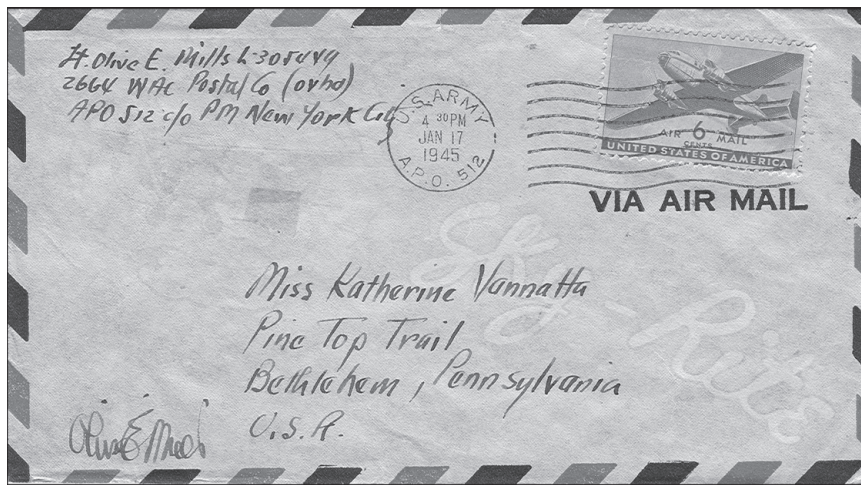 Lt. Olive E. Mills L-305449
2664 WAC Postal Co (ovhd)
APO 512 c/o PM New York City
U.S. ARMY
4 30 PM
JAN 17
1945
A.P.O. 512
AIR 6 MAIL
CENTS
UNITED STATES OF AMERICA
VIA AIR MAIL
Sky-Rite
Miss Katherine Vannatta
Pine Top Trail
Bethlehem, Pennsylvania
U.S.A.
Olive E Mills